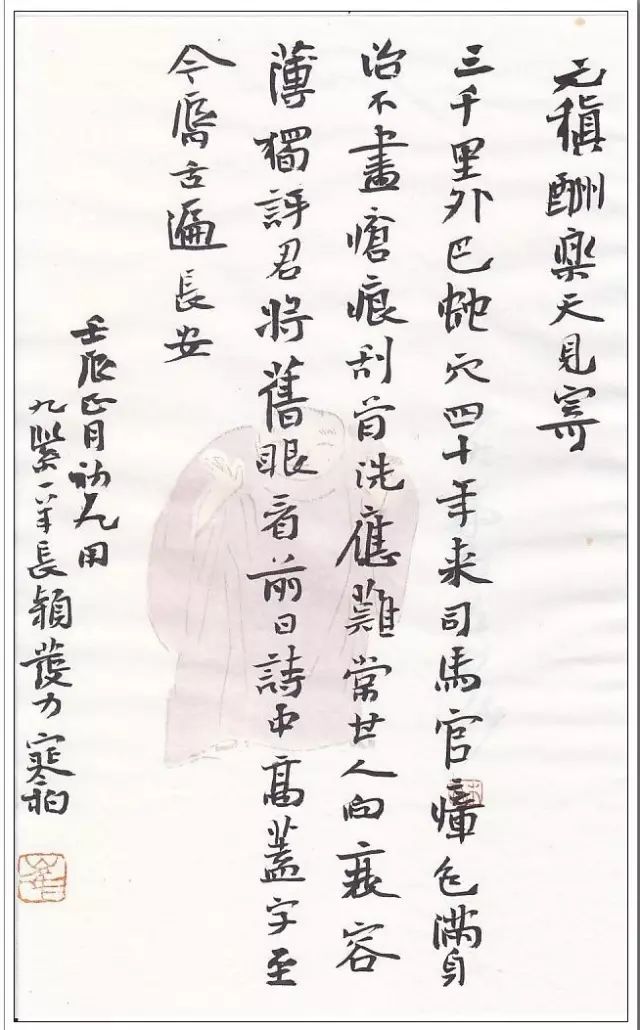 元稹酬樂天見寄
三千里外巴虵穴四十年来司馬官瘴色满身
治不盡瘡痕刮骨洗應難常甘人向衰容
薄獨訝君將舊眼看前日詩中高蓋字至
今脣舌遍長安
壬辰正月初九用
九紫一羊長穎護力寒柏